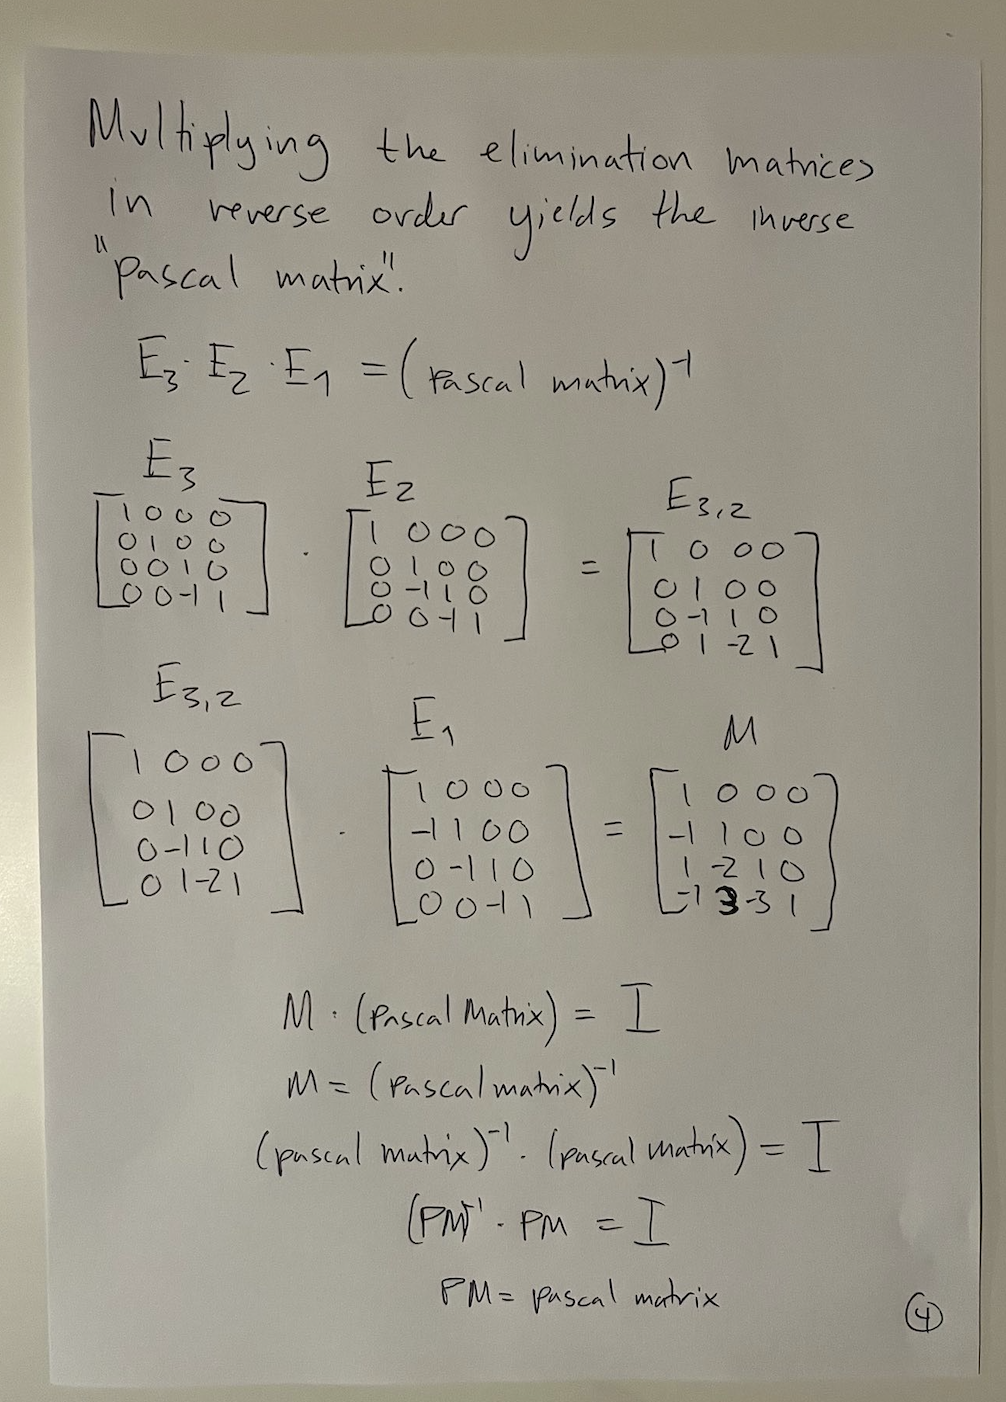 Multiplying the elimination matrices
in reverse order yields the inverse
"pascal matrix".
E₃ · E₂ · E₁ = (pascal matrix)⁻¹
E₃ E₂ E₃,₂
[1 0 0 0] [1 0 0 0] [1 0 0 0]
[0 1 0 0] · [0 1 0 0] = [0 1 0 0]
[0 0 1 0] [0 -1 1 0] [0 -1 1 0]
[0 0 -1 1] [0 0 -1 1] [0 1 -2 1]
E₃,₂ E₁ M
[1 0 0 0] [1 0 0 0] [1 0 0 0]
[0 1 0 0] · [-1 1 0 0] = [-1 1 0 0]
[0 -1 1 0] [0 -1 1 0] [1 -2 1 0]
[0 1 -2 1] [0 0 -1 1] [-1 3 -3 1]
M · (Pascal Matrix) = I
M = (Pascal matrix)⁻¹
(pascal matrix)⁻¹ · (pascal matrix) = I
(PM)⁻¹ · PM = I
PM = pascal matrix
④